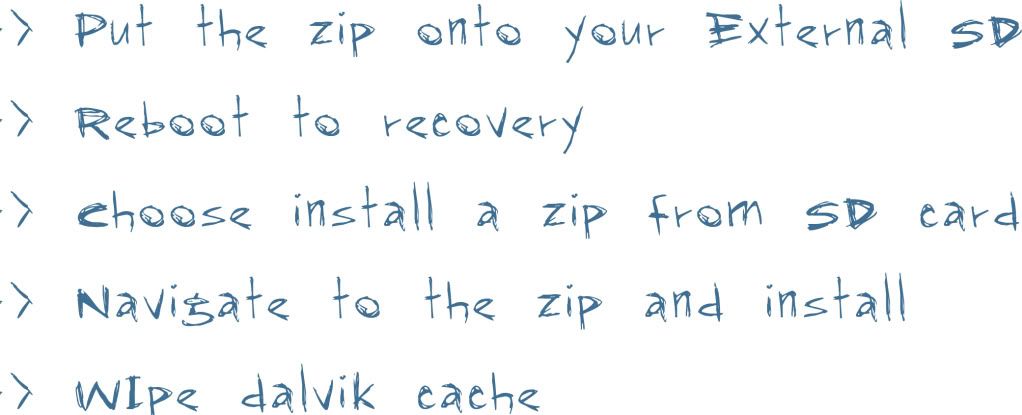 > Put the zip onto your External SD
> Reboot to recovery
> choose install a zip from SD card
> Navigate to the zip and install
> WIpe dalvik cache